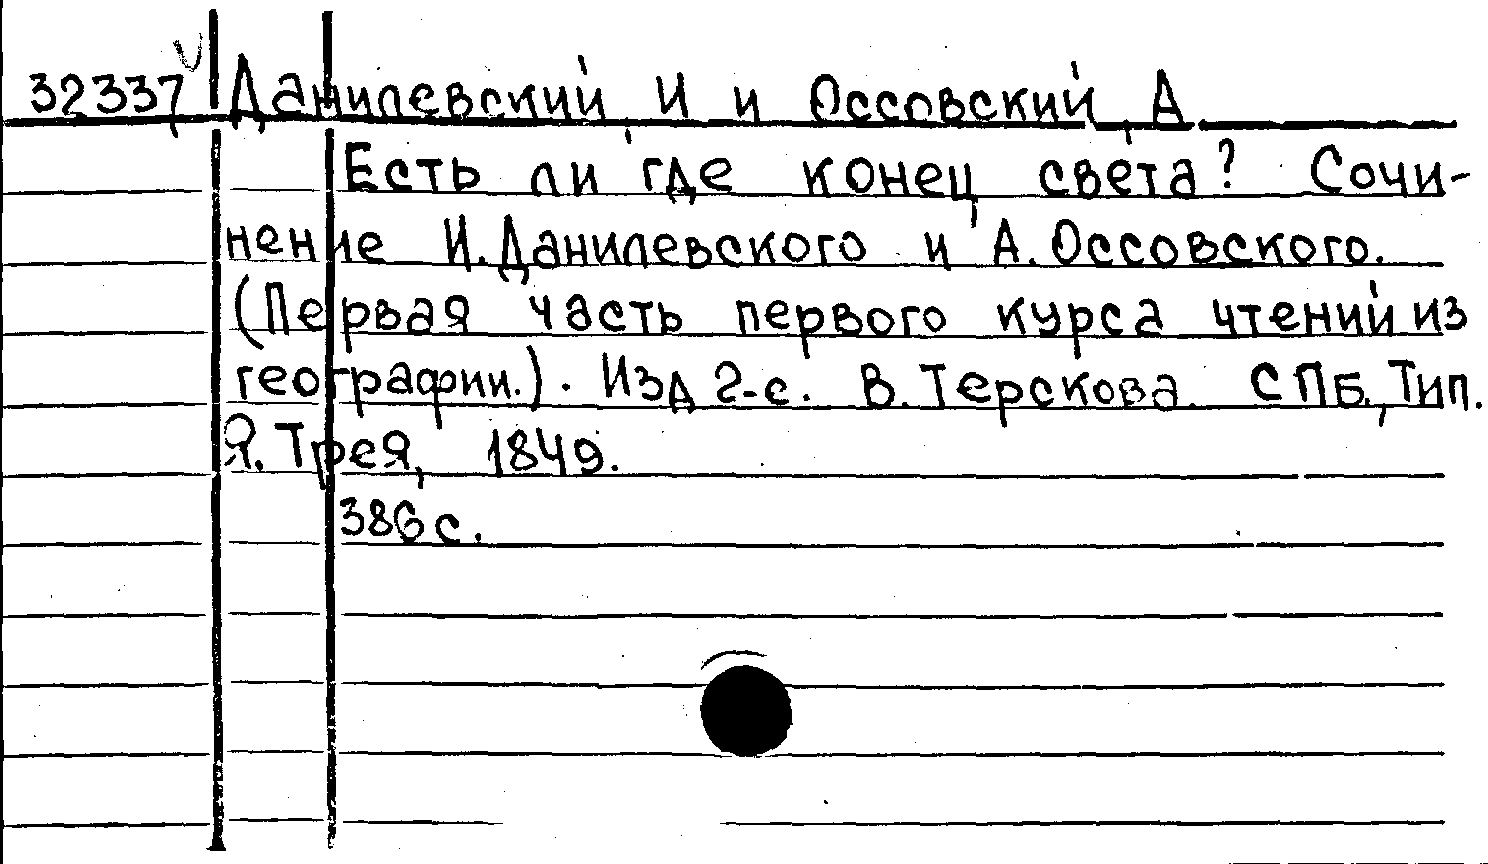 32337 Данилевский, И и Оссовский, А.
Есть ли где конец света? Сочи-
нение И. Данилевского и А. Оссовского.
(Первая часть первого курса чтений из
географии.). Изд 2-е. В. Терскова. СПБ., Тип.
Я. Трея, 1849.
386 с.